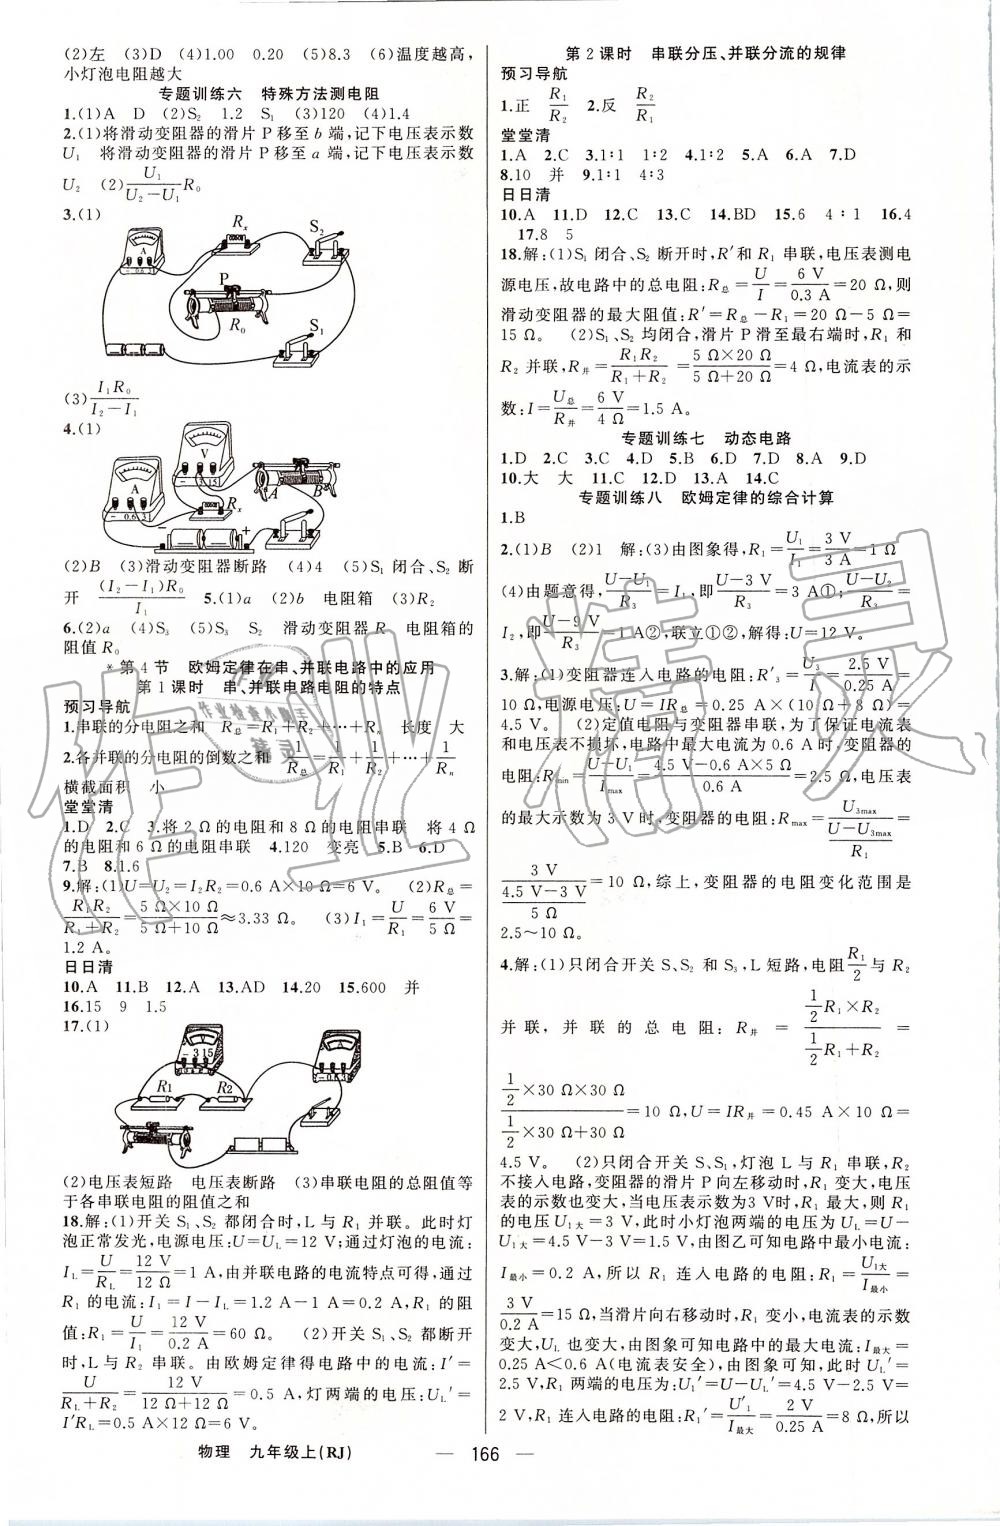 (2)左　(3)D　(4)1.00　0.20　(5)8.3　(6)温度越高,
小灯泡电阻越大
专题训练六　特殊方法测电阻
1.(1)A　D　(2)S₂　1.2　S₁　(3)120　(4)1.4
2.(1)将滑动变阻器的滑片 P 移至 b 端,记下电压表示数
U₁　将滑动变阻器的滑片 P 移至 a 端,记下电压表示数
U₂　(2)U₁/(U₂−U₁)R₀
3.(1)
A
-0.6 3
Rₓ
S₂
P
R₀
S₁
(3)I₁R₀/(I₂−I₁)
4.(1)
A
-0.6 3
V
- 3 15
Rₓ
A
B
−
+
(2)B　(3)滑动变阻器断路　(4)4　(5)S₁ 闭合、S₂ 断
开　(I₂−I₁)R₀/I₁　5.(1)a　(2)b　电阻箱　(3)R₂
6.(2)a　(4)S₃　(5)S₃　S₂　滑动变阻器 R₁　电阻箱的
阻值 R₀
*第 4 节　欧姆定律在串、并联电路中的应用
第 1 课时　串、并联电路电阻的特点
预习导航
1.串联的分电阻之和　R总=R₁+R₂+…+Rₙ　长度　大
2.各并联的分电阻的倒数之和　1/R总=1/R₁+1/R₂+…+1/Rₙ
横截面积　小
堂堂清
1.D　2.C　3.将 2 Ω的电阻和 8 Ω的电阻串联　将 4 Ω
的电阻和 6 Ω的电阻串联　4.120　变亮　5.B　6.D
7.B　8.1.6
9.解:(1)U=U₂=I₂R₂=0.6 A×10 Ω=6 V。　(2)R总=
R₁R₂/(R₁+R₂)=(5 Ω×10 Ω)/(5 Ω+10 Ω)≈3.33 Ω。　(3)I₁=U/R₁=6 V/5 Ω=
1.2 A。
日日清
10.A　11.B　12.A　13.AD　14.20　15.600　并
16.15　9　1.5
17.(1)
- 3 15
A
-0.6 3
R1
R2
(2)电压表短路　电压表断路　(3)串联电阻的总阻值等
于各串联电阻的阻值之和
18.解:(1)开关 S₁、S₂ 都闭合时,L 与 R₁ 并联。此时灯
泡正常发光,电源电压:U=U_L=12 V;通过灯泡的电流:
I_L=U/R_L=12 V/12 Ω=1 A,由并联电路的电流特点可得,通过
R₁ 的电流:I₁=I−I_L=1.2 A−1 A=0.2 A,R₁ 的阻
值:R₁=U/I₁=12 V/0.2 A=60 Ω。　(2)开关 S₁、S₂ 都断开
时,L 与 R₂ 串联。由欧姆定律得电路中的电流:I′=
U/(R_L+R₂)=12 V/(12 Ω+12 Ω)=0.5 A,灯两端的电压:U_L′=
I′R_L=0.5 A×12 Ω=6 V。
第 2 课时　串联分压、并联分流的规律
预习导航
1.正　R₁/R₂　2.反　R₂/R₁
堂堂清
1.A　2.C　3.1∶1　1∶2　4.1∶2　5.A　6.A　7.D
8.10　并　9.1∶1　4∶3
日日清
10.A　11.D　12.C　13.C　14.BD　15.6　4∶1　16.4
17.8　5
18.解:(1)S₁ 闭合、S₂ 断开时,R′和 R₁ 串联,电压表测电
源电压,故电路中的总电阻:R总=U/I=6 V/0.3 A=20 Ω,则
滑动变阻器的最大阻值:R′=R总−R₁=20 Ω−5 Ω=
15 Ω。　(2)S₁、S₂ 均闭合,滑片 P 滑至最右端时,R₁ 和
R₂ 并联,R并=R₁R₂/(R₁+R₂)=(5 Ω×20 Ω)/(5 Ω+20 Ω)=4 Ω,电流表的示
数:I=U总/R并=6 V/4 Ω=1.5 A。
专题训练七　动态电路
1.D　2.C　3.C　4.D　5.B　6.D　7.D　8.A　9.D
10.大　大　11.C　12.D　13.A　14.C
专题训练八　欧姆定律的综合计算
1.B
2.(1)B　(2)1　解:(3)由图象得,R₁=U₁/I₁=3 V/3 A=1 Ω
(4)由题意得,(U−U₁)/R₃=I₁,即(U−3 V)/R₃=3 A①;(U−U₂)/R₃=
I₂,即(U−9 V)/R₃=1 A②,联立①②,解得:U=12 V。
3.解:(1)变阻器连入电路的电阻:R′₃=U₃/I=2.5 V/0.25 A=
10 Ω,电源电压:U=IR总=0.25 A×(10 Ω+8 Ω)=
4.5 V。　(2)定值电阻与变阻器串联,为了保证电流表
和电压表不损坏,电路中最大电流为 0.6 A时,变阻器的
电阻:Rmin=(U−U₁)/Imax=(4.5 V−0.6 A×5 Ω)/0.6 A=2.5 Ω,电压表
的最大示数为 3 V时,变阻器的电阻:Rmax=U₃max/((U−U₃max)/R₁)=
3 V/((4.5 V−3 V)/5 Ω)=10 Ω,综上,变阻器的电阻变化范围是
2.5～10 Ω。
4.解:(1)只闭合开关 S、S₂ 和 S₃,L 短路,电阻R₁/2与 R₂
并联,并联的总电阻:R并=(1/2R₁×R₂)/(1/2R₁+R₂)=
(1/2×30 Ω×30 Ω)/(1/2×30 Ω+30 Ω)=10 Ω,U=IR并=0.45 A×10 Ω=
4.5 V。　(2)只闭合开关 S、S₁,灯泡 L 与 R₁ 串联,R₂
不接入电路,变阻器的滑片 P 向左移动时,R₁ 变大,电压
表的示数也变大,当电压表示数为3 V时,R₁ 最大,则 R₁
的电压 U₁大=3 V,此时小灯泡两端的电压为 U_L=U−
U₁大=4.5 V−3 V=1.5 V,由图乙可知电路中最小电流:
I最小=0.2 A,所以 R₁ 连入电路的电阻:R₁大=U₁大/I最小=
3 V/0.2 A=15 Ω,当滑片向右移动时,R₁ 变小,电流表的示数
变大,U_L 也变大,由图象可知电路中的最大电流:I最大=
0.25 A<0.6 A(电流表安全),由图象可知,此时 U_L′=
2.5 V,R₁ 两端的电压:U₁′=U−U_L′=4.5 V−2.5 V=
2 V,R₁ 连入电路的电阻:R₁′=U′₁/I最大=2 V/0.25 A=8 Ω,所以
物理　九年级上(RJ)
— 166 —
作业精灵
作业检查小助手
精灵